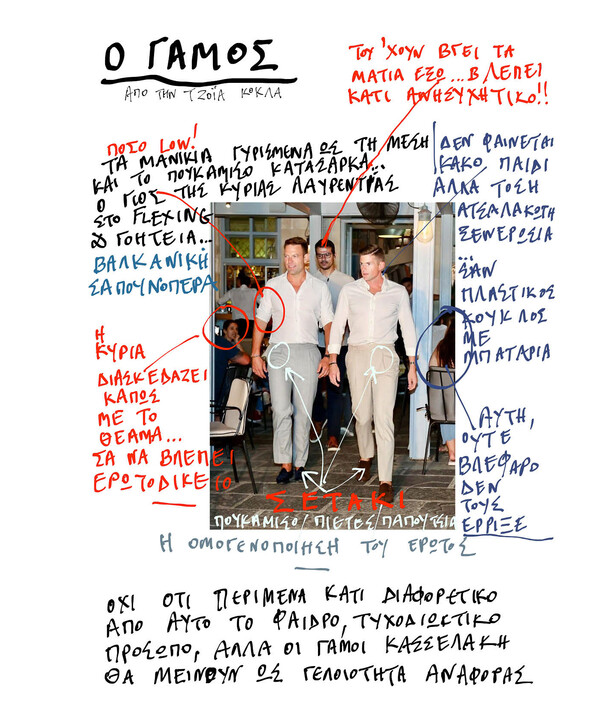 Ο ΓΑΜΟΣ
ΑΠΟ ΤΗΝ ΤΖΟΪΑ ΚΟΚΛΑ
ΤΟΥ 'ΧΟΥΝ ΒΓΕΙ ΤΑ
ΜΑΤΙΑ ΕΞΩ...ΒΛΕΠΕΙ
ΚΑΤΙ ΑΝΗΣΥΧΗΤΙΚΟ!!
ΠΟΣΟ LOW!
ΤΑ ΜΑΝΙΚΙΑ ΓΥΡΙΣΜΕΝΑ ΩΣ ΤΗ ΜΕΣΗ
ΚΑΙ ΤΟ ΠΟΥΚΑΜΙΣΟ ΚΑΤΑΣΑΡΚΑ...
Ο ΓΙΟΣ ΤΗΣ ΚΥΡΙΑΣ ΛΑΥΡΕΝΤΡΑΣ
ΣΤΟ FLEXING
& ΓΟΗΤΕΙΑ...
ΒΑΛΚΑΝΙΚΗ
ΣΑΠΟΥΝΟΠΕΡΑ
ΔΕΝ ΦΑΙΝΕΤΑΙ
ΚΑΚΟ ΠΑΙΔΙ
ΑΛΛΑ ΤΟΣΗ
ΑΤΣΑΛΑΚΩΤΗ
ΞΕΝΕΡΩΣΙΑ
...
ΣΑΝ
ΠΛΑΣΤΙΚΟΣ
ΚΟΥΚΛΟΣ
ΜΕ
ΜΠΑΤΑΡΙΑ
Η
ΚΥΡΙΑ
ΔΙΑΣΚΕΔΑΖΕΙ
ΚΑΠΩΣ
ΜΕ ΤΟ
ΘΕΑΜΑ...
ΣΑ ΝΑ ΒΛΕΠΕΙ
ΕΡΩΤΟΔΙΚΕΙΟ
ΑΥΤΗ,
ΟΥΤΕ
ΒΛΕΦΑΡΟ
ΔΕΝ
ΤΟΥΣ
ΕΡΡΙΞΕ
ΣΕΤΑΚΙ
ΠΟΥΚΑΜΙΣΟ/ΠΙΕΤΕΣ/ΠΑΠΟΥΤΣΙΑ
Η ΟΜΟΓΕΝΟΠΟΙΗΣΗ ΤΟΥ ΕΡΩΤΟΣ
ΟΧΙ ΟΤΙ ΠΕΡΙΜΕΝΑ ΚΑΤΙ ΔΙΑΦΟΡΕΤΙΚΟ
ΑΠΟ ΑΥΤΟ ΤΟ ΦΑΙΔΡΟ, ΤΥΧΟΔΙΩΚΤΙΚΟ
ΠΡΟΣΩΠΟ, ΑΛΛΑ ΟΙ ΓΑΜΟΙ ΚΑΣΣΕΛΑΚΗ
ΘΑ ΜΕΙΝΟΥΝ ΩΣ ΓΕΛΟΙΟΤΗΤΑ ΑΝΑΦΟΡΑΣ